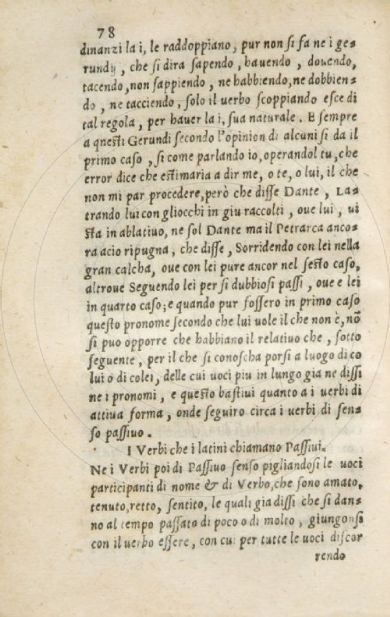 78
dinanzi la i, le raddoppiano, pur non si fa ne i ge=
rundij, che si dira sapendo, hauendo, douendo,
tacendo, non sappiendo, ne habbiendo, ne dobbien=
do, ne tacciendo, solo il uerbo scoppiando esce di
tal regola, per hauer la i, sua naturale. E sempre
a questi Gerundi secondo l'opinion di alcuni si da il
primo caso, si come parlando io, operandol tu, che
error dice che estimaria a dir me, o te, o lui, il che
non mi par procedere, però che disse Dante, La=
trando lui con gliocchi in giu raccolti, oue lui, ui
sta in ablatiuo, ne sol Dante ma il Petrarca anco=
ra acio ripugna, che disse, Sorridendo con lei nella
gran calcha, oue con lei pure ancor nel sesto caso,
altroue Seguendo lei per si dubbiosi passi, oue e lei
in quarto caso; e quando pur fossero in primo caso
questo pronome secondo che lui uole il che non è, nõ
si puo opporre che habbiano il relatiuo che, sotto
seguente, per il che si conoscha porsi a luogo di co
lui o di colei, delle cui uoci piu in lungo gia ne dissi
ne i pronomi, e questo bastiui quanto a i uerbi di
attiua forma, onde seguiro circa i uerbi di sen=
so passiuo.
I Verbi che i latini chiamano Passiui.
Ne i Verbi poi di Passiuo senso pigliandosi le uoci
participanti di nome & di Verbo, che sono amato,
tenuto, retto, sentito, le quali gia dissi che si dan=
no al tempo passato di poco o di molto, giungonsi
con il uerbo essere, con cui per tutte le uoci discor
rendo